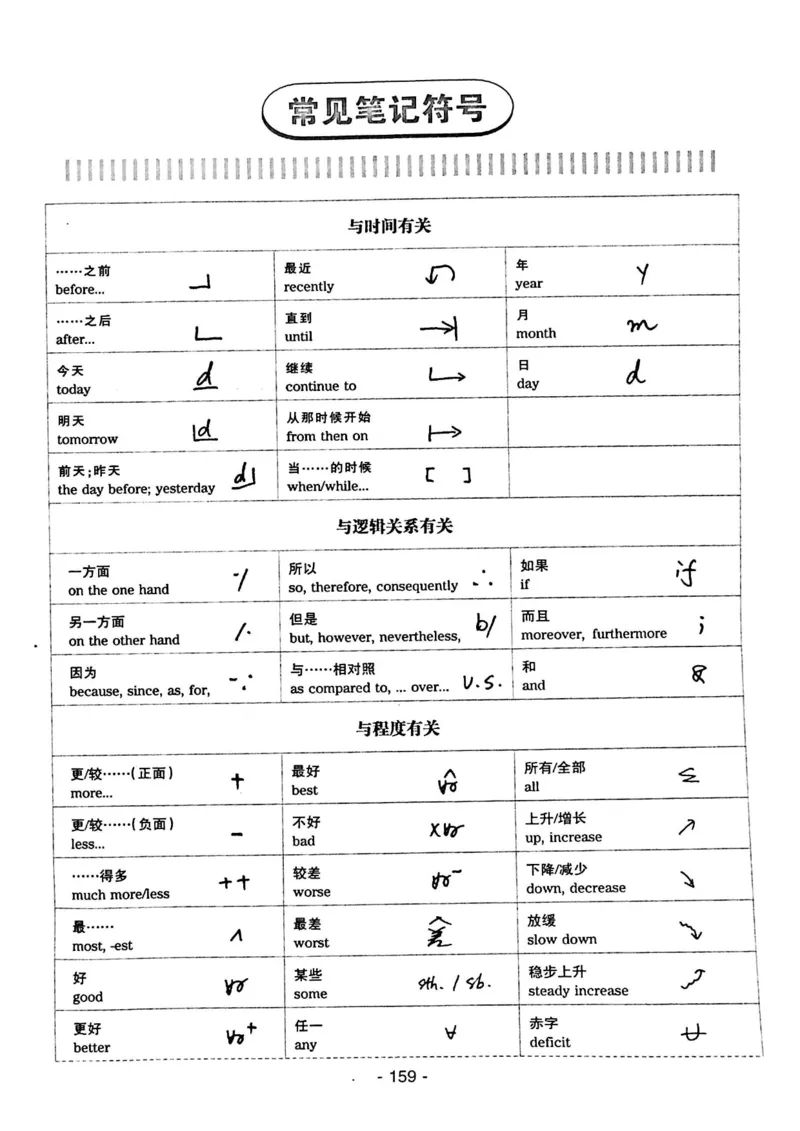 常见笔记符号
与时间有关
……之前
before...
最近
recently
年
year
y
……之后
after...
直到
until
月
month
m
今天
today
d
继续
continue to
日
day
d
明天
tomorrow
d
从那时候开始
from then on
前天;昨天
the day before; yesterday
d
当……的时候
when/while...
[ ]
与逻辑关系有关
一方面
on the one hand
·/
所以
so, therefore, consequently
∴
如果
if
if
另一方面
on the other hand
/·
但是
but, however, nevertheless,
b/
而且
moreover, furthermore
;
因为
because, since, as, for,
∵
与……相对照
as compared to, ... over...
V.S.
和
and
&
与程度有关
更/较……(正面)
more...
+
最好
best
所有/全部
all
更/较……(负面)
less...
-
不好
bad
上升/增长
up, increase
↗
……得多
much more/less
++
较差
worse
下降/减少
down, decrease
↘
最……
most, -est
∧
最差
worst
差
放缓
slow down
好
good
某些
some
sth. / sb.
稳步上升
steady increase
更好
better
任一
any
∀
赤字
deficit
- 159 -